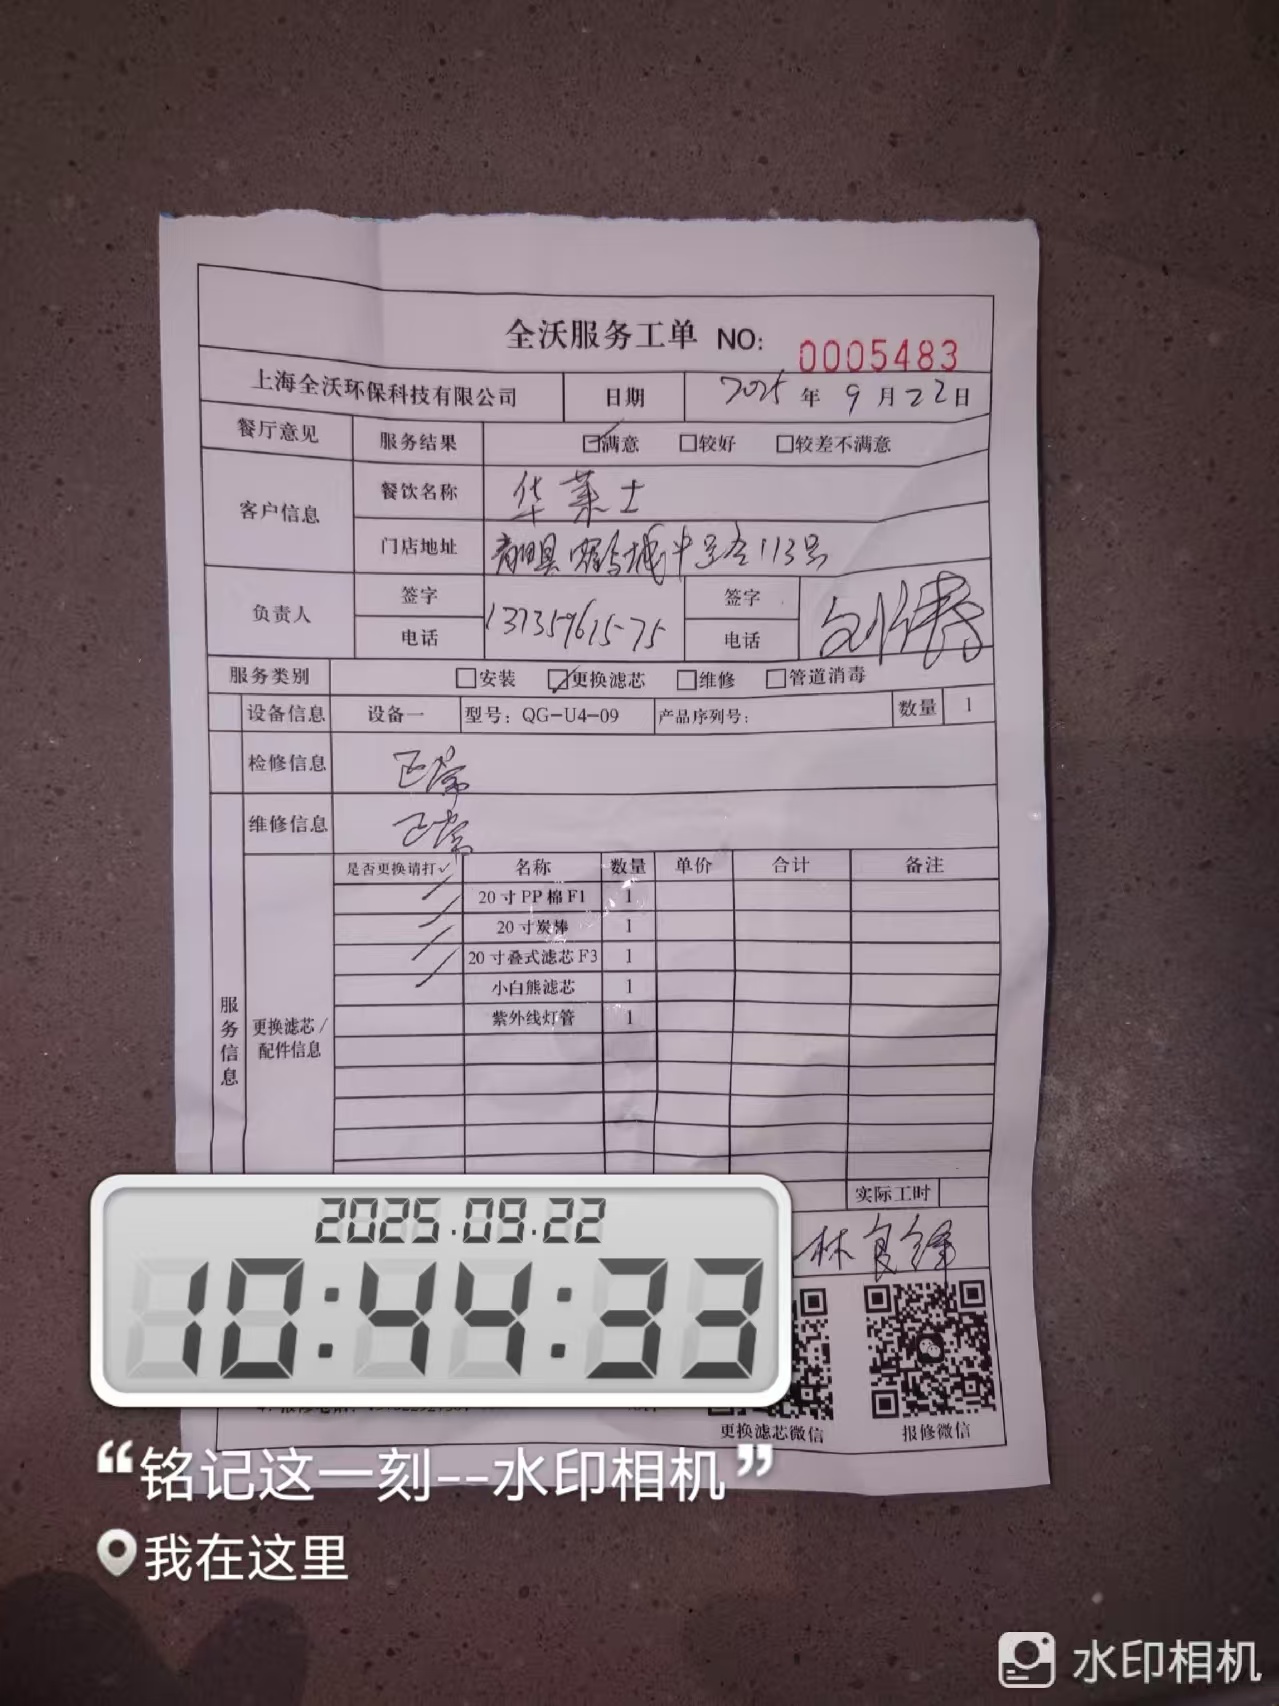 全沃服务工单 NO: 0005483
上海全沃环保科技有限公司 日期 2025年9月22日
餐厅意见 服务结果 ☑满意 □较好 □较差不满意
客户信息 餐饮名称 华莱士
门店地址 113号
负责人 签字 签字
电话 13735961575 电话
服务类别 □安装 ☑更换滤芯 □维修 □管道消毒
设备信息 设备一 型号：QG-U4-09 产品序列号： 数量 1
检修信息 正常
维修信息 正常
服务信息
更换滤芯/
配件信息
是否更换请打✓ 名称 数量 单价 合计 备注
✓ 20寸PP棉F1 1
✓ 20寸炭棒 1
✓ 20寸叠式滤芯F3 1
✓ 小白熊滤芯 1
紫外线灯管 1
实际工时
林良锋
更换滤芯微信 报修微信
2025.09.22
10:44:33
“铭记这一刻--水印相机”
我在这里
水印相机